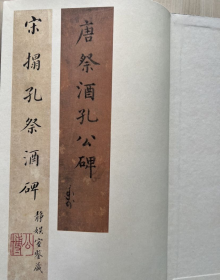 唐祭酒孔公碑
宋搨孔祭酒碑
靜娛室鑒藏